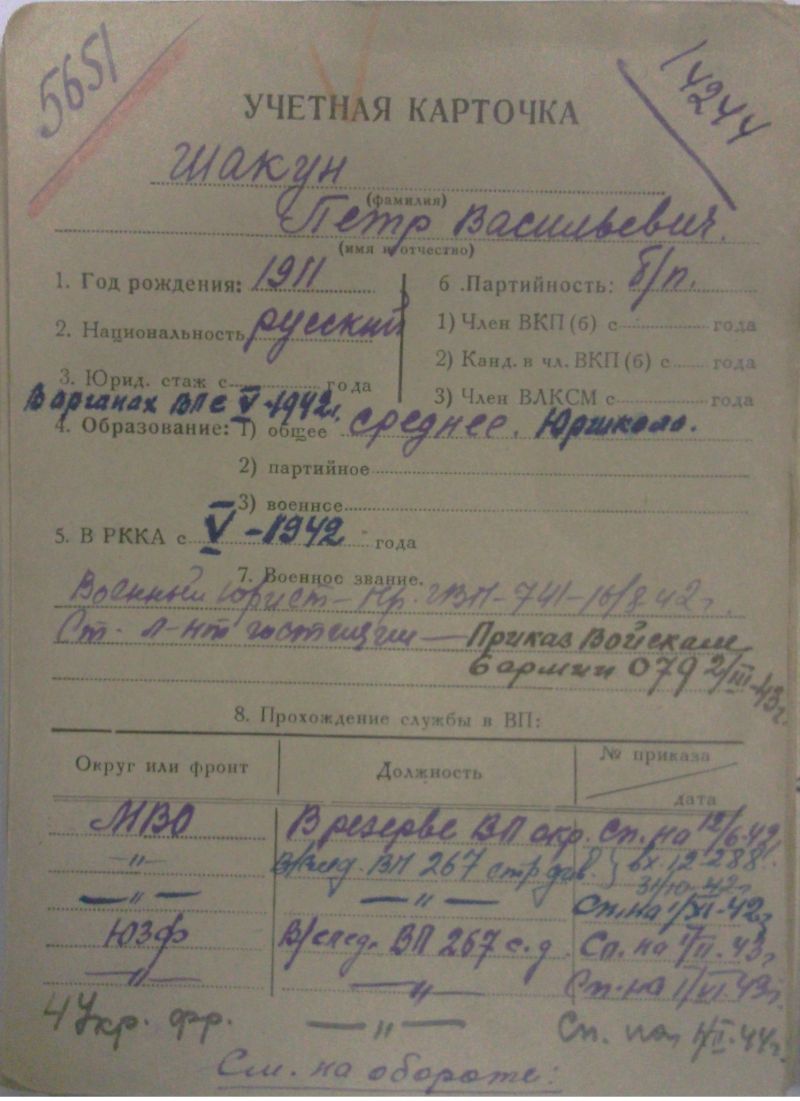 5651
14244
УЧЕТНАЯ КАРТОЧКА
Шакун
(фамилия)
Петр Васильевич.
(имя и отчество)
1. Год рождения: 1911
6. Партийность: б/п.
2. Национальность русский
1) Член ВКП(б) с года
3. Юрид. стаж с года
2) Канд. в чл. ВКП(б) с года
В органах ВП с V-1942г.
3) Член ВЛКСМ с года
4. Образование: 1) общее среднее. Юршкола.
2) партийное
3) военнсе
5. В РККА с V-1942 года
7. Военное звание.
Военный юрист — Пр. ГВП-741-16/8 42г.
Ст. л-нт юстиции — Приказ Войскам
6 армии 079 2/III-43г.
8. Прохождение службы в ВП:
Округ или фронт Должность № приказа
дата
МВО В резерве ВП окр. Сп. на 12/6-42г.
—„— В/след. ВП 267 стр див. вх. 12288
31/10-42г.
—„— —„— Сп. на 1/XI-42г
ЮЗФ В/след. ВП 267 с.д. Сп. на 1/II-43г
—„— —„— Сп. на 1/VI-43г.
4 Укр. фр. —„— Сп. на 1/II-44г.
См. на обороте: